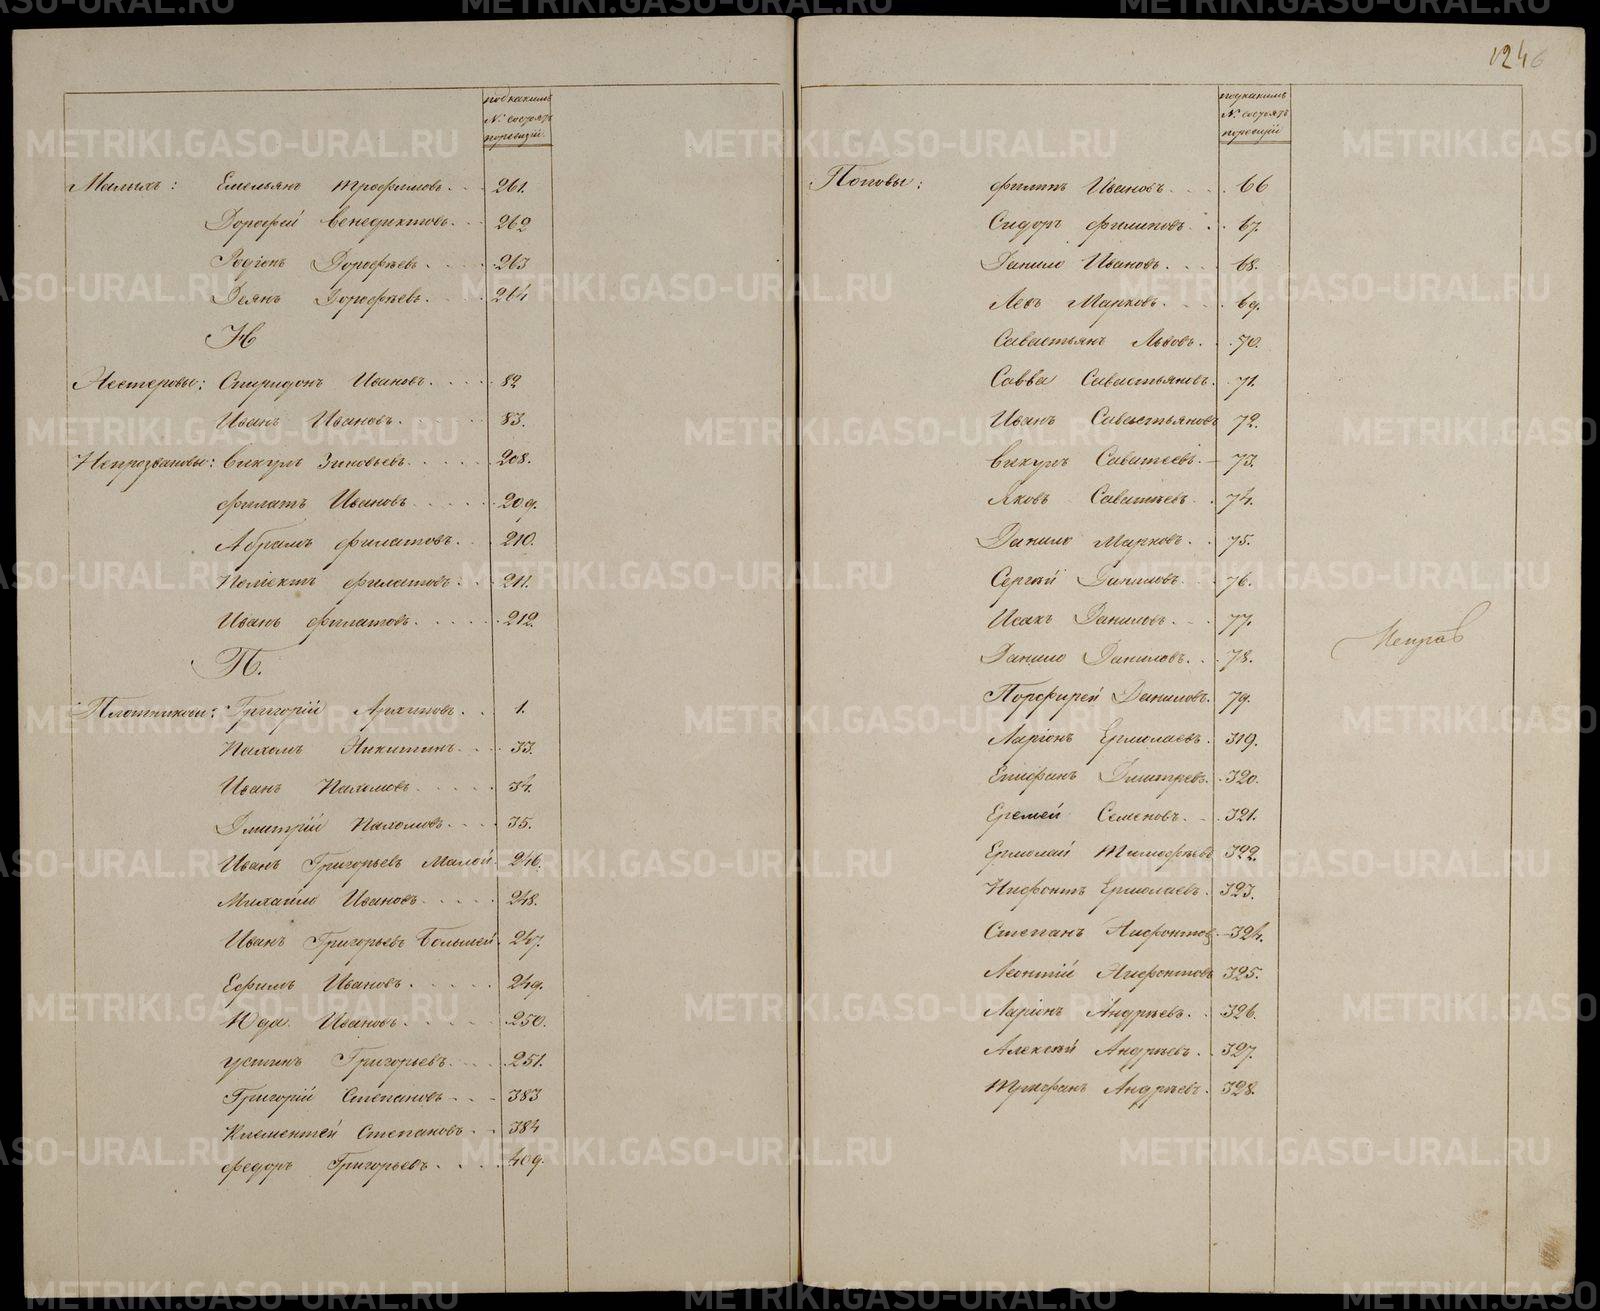 подъ какимъ
№. состоятъ
по ревизіи.
Малыхъ: Емельянъ Трофимовъ. 261.
Дорофей Венедиктовъ. 262
Родіонъ Дорофѣевъ. 263
Деянъ Дорофѣевъ. 264
Н
Нестеровы: Спиридонъ Ивановъ. 82
Иванъ Ивановъ. 83.
Непрозвановы: Викулъ Зиновьевъ. 208.
Филатъ Ивановъ 209.
Абрамъ Филатовъ. 210.
Поліектъ Филатовъ. 211.
Иванъ Филатовъ. 212.
П.
Плотниковы: Григорій Архиповъ. 1.
Пахомъ Никитинъ. 33.
Иванъ Пахомовъ. 34.
Дмитрій Пахомовъ. 35.
Иванъ Григорьевъ Малой. 246.
Михайло Ивановъ. 248.
Иванъ Григорьевъ Большей. 247.
Ефимъ Ивановъ. 249.
Юда Ивановъ. 250.
Устинъ Григорьевъ. 251.
Григорій Степановъ. 383
Климентей Степановъ. 384
Федоръ Григорьевъ. 409.
1246
подъ какимъ
№. состоятъ
по ревизіи
Поповы: Филипъ Ивановъ. 66
Сидоръ Филиповъ. 67.
Данило Ивановъ. 68.
Левъ Марковъ. 69.
Савастьянъ Львовъ. 70.
Савва Савастьяновъ. 71.
Иванъ Савастьяновъ 72.
Викулъ Саватеевъ. 73.
Яковъ Саватѣевъ. 74.
Данило Марковъ. 75.
Сергѣй Даниловъ. 76.
Исакъ Даниловъ. 77.
Данило Даниловъ. 78.
Порфирей Даниловъ. 79.
Ларіонъ Ермолаевъ. 319.
Епифанъ Дмитревъ. 320.
Еремей Семеновъ. 321.
Ермолай Тимофѣевъ 322.
Нифонтъ Ермолаевъ. 323.
Степанъ Нифонтовъ. 324.
Леонтій Нифонтовъ 325.
Ларіонъ Андрѣевъ. 326.
Алексѣй Андрѣевъ. 327.
Трифанъ Андрѣевъ. 328.
METRIKI.GASO-URAL.RU